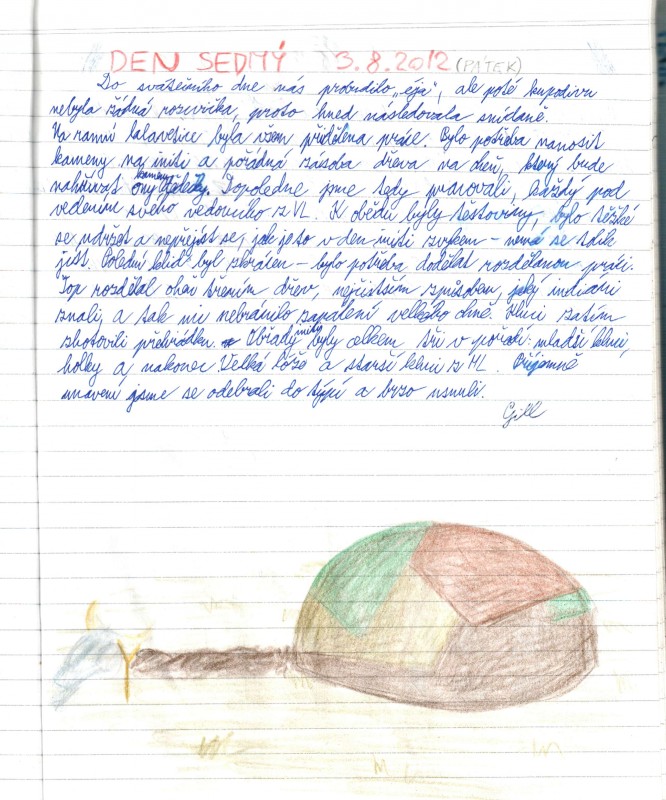 DEN SEDMÝ 3.8.2012 (PÁTEK)
Do svátečního dne nás probudilo „éjá", ale poté kupodivu
nebyla žádná rozcvička, proto hned následovala snídaně.
Na ranní lalavetice byla všem přidělena práce. Bylo potřeba nanosit
kameny na initi a pořádná zásoba dřeva na oheň, který bude
nahřívat ony kameny. Dopoledne jsme tedy pracovali, každý pod
vedením svého vedoucího z VL. K obědu byly těstoviny, bylo těžké
se udržet a nepřejíst se, jak je to v den initi zvykem – nemá se tolik
jíst. Polední klid byl zkrácen – bylo potřeba dodělat rozdělanou práci.
Top rozdělal oheň třením dřev, nejčistším způsobem, jaký indiáni
znali, a tak mu nebránilo zapálení velkého ohně. Kluci zatím
zhotovili přehrádku. Obřady initi byly celkem tři v pořadí: mladší kluci,
holky a nakonec Velká lóže a starší kluci z ML. Příjemně
unavení jsme se odebrali do týpí a brzo usnuli.
Gill